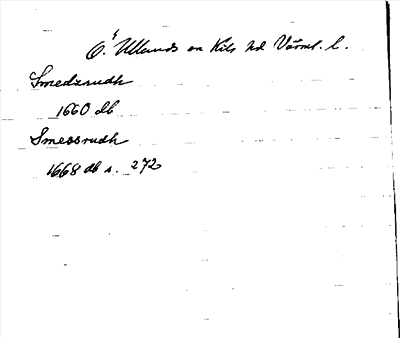 Ö. Ulleruds sn Kils hd Värml. l.
Smedzrudh
1660 db
Smessrudh
1668 db s. 272